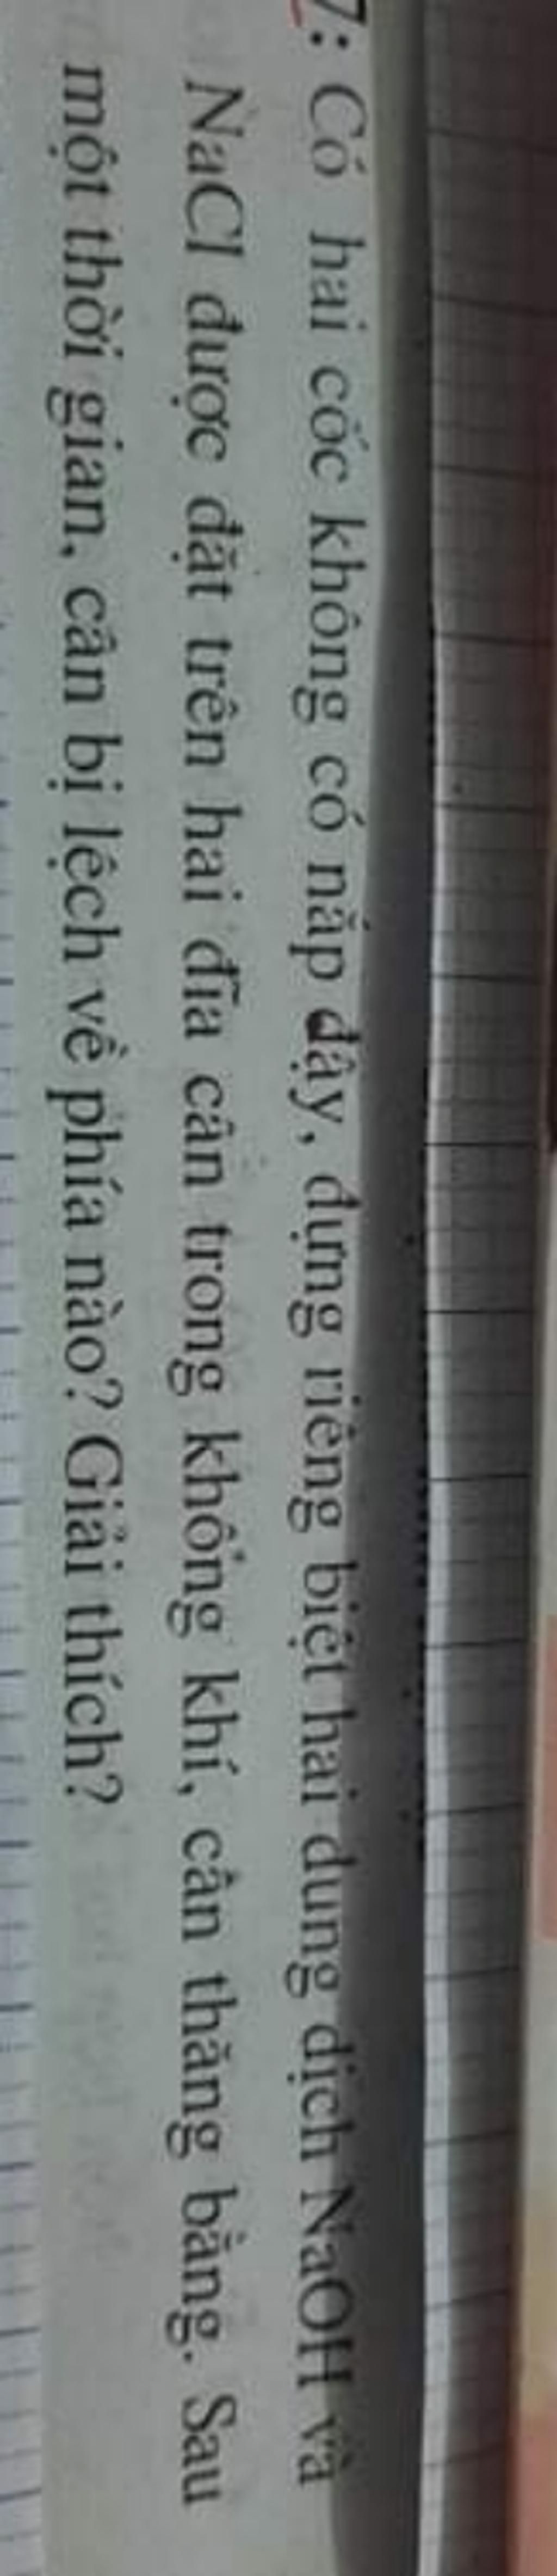 7: Có hai cốc không có nắp đậy, đựng riêng biệt hai dung dịch NaOH và
NaCl được đặt trên hai đĩa cân trong không khí, cân thăng bằng. Sau
một thời gian, cân bị lệch về phía nào? Giải thích?